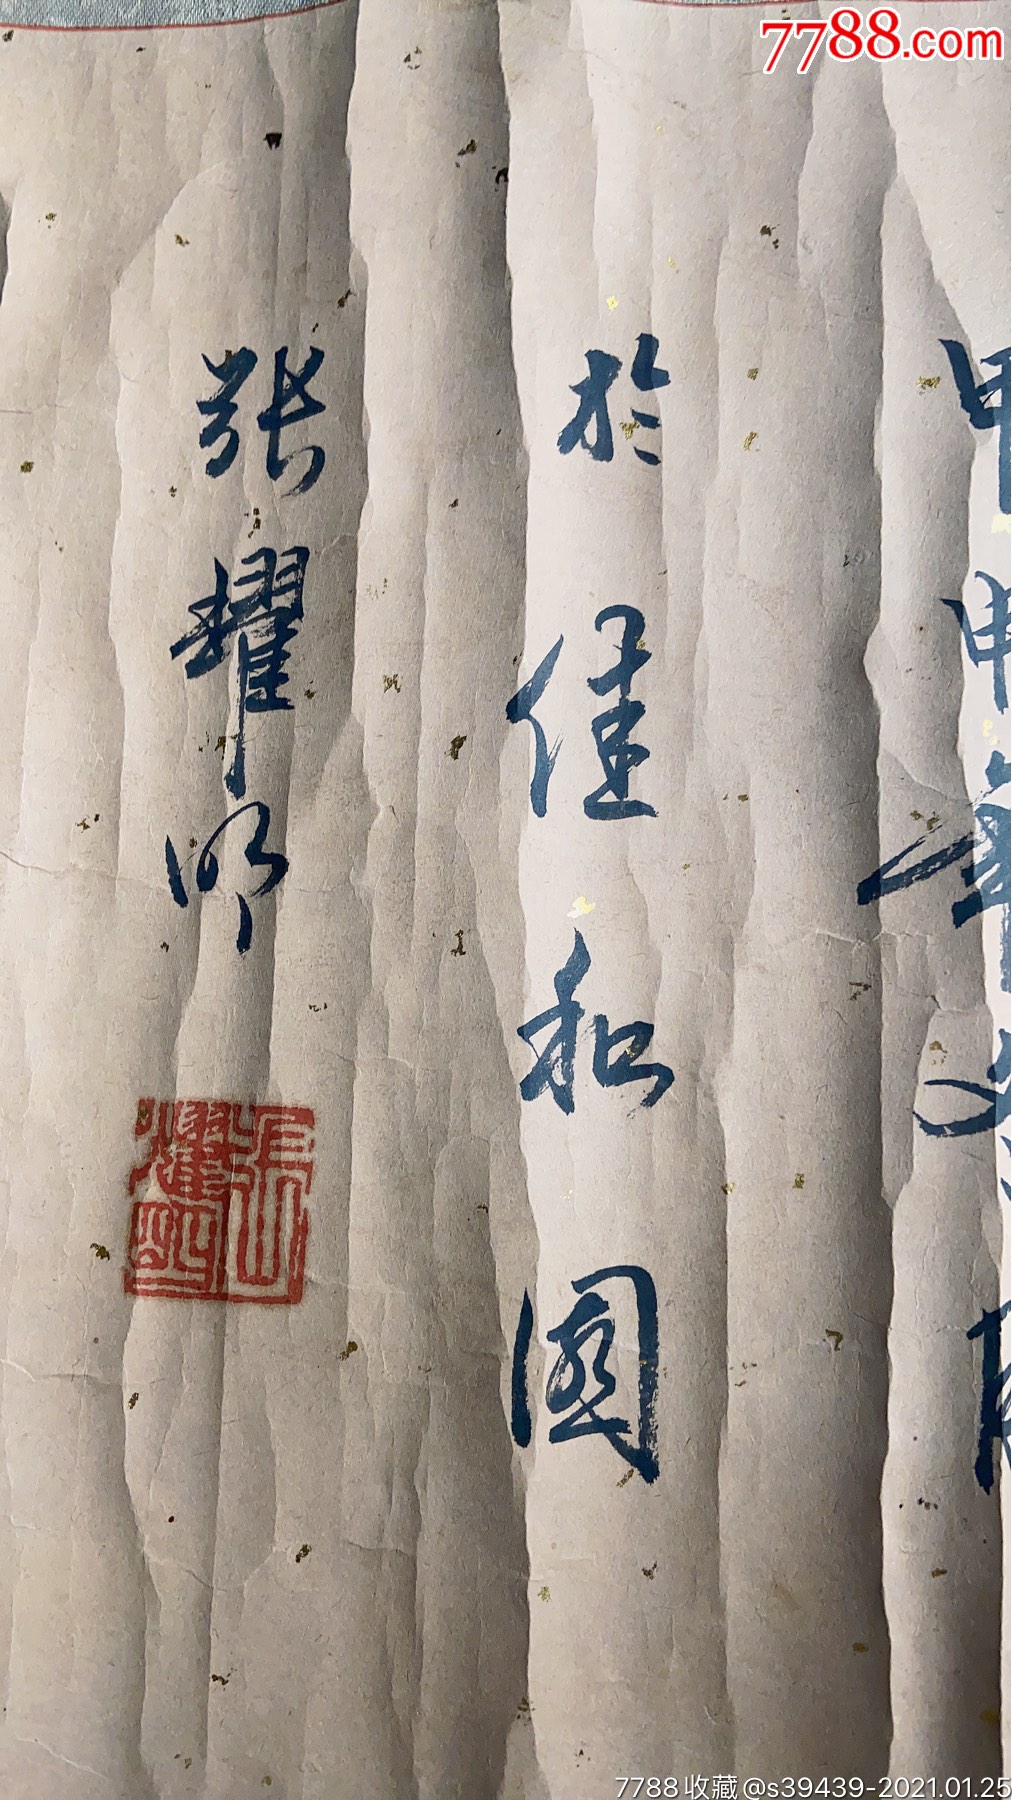 7788.com
甲申年
於佳和園
張耀明
張耀明
7788收藏@s39439-2021.01.25